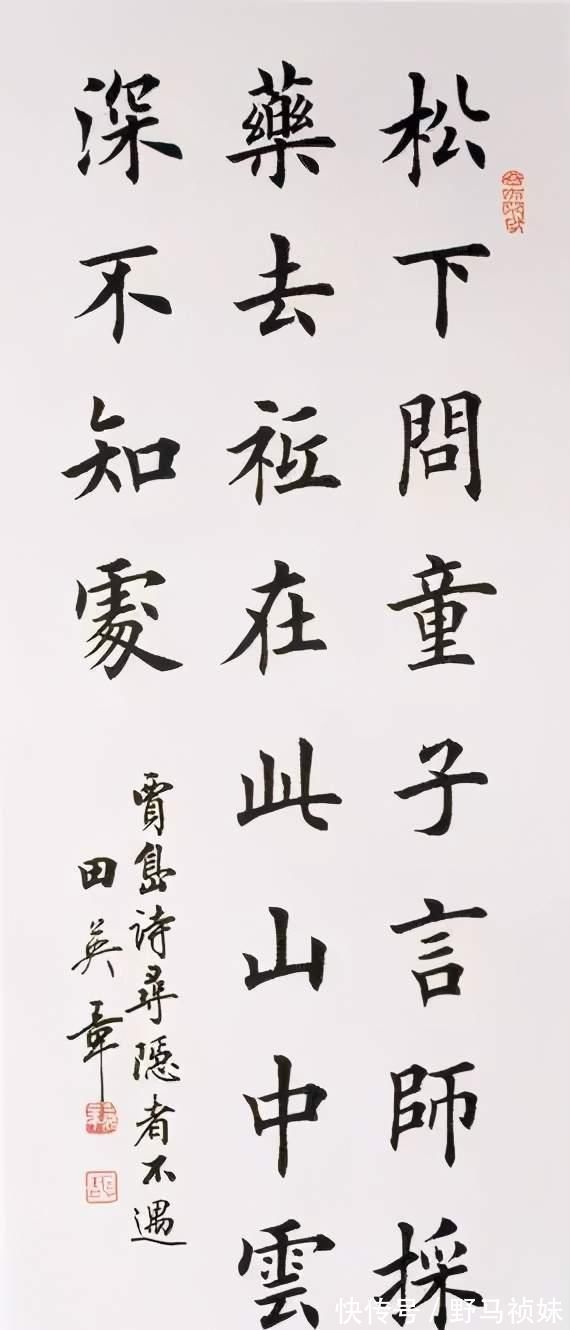 松下問童子言師採
藥去祗在此山中雲
深不知處
賈島詩尋隱者不遇
田英章
快传号/野马祯妹